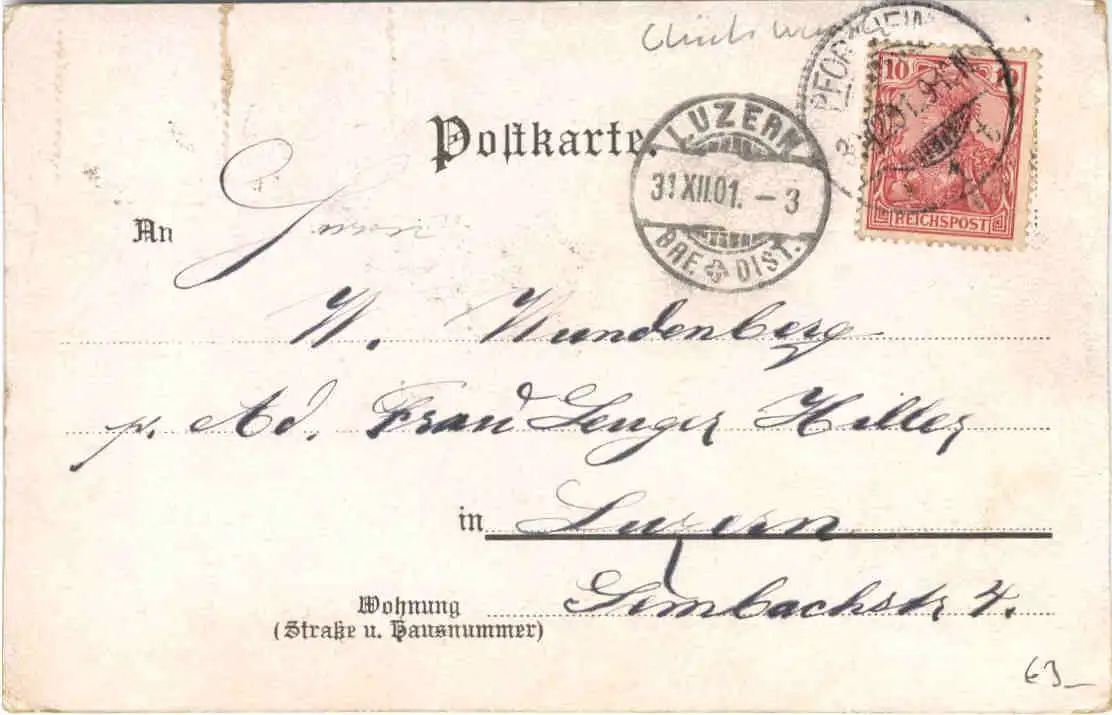 PFORZHEIM
10
REICHSPOST
LUZERN
31.XII.01. – 3
BRF. DIST.
Postkarte.
An
W. Wundenberg
p. Ad. Frau Zenger Hiller
in Luzern
Wohnung
(Straße u. Hausnummer)
Sembachstr 4.
63_